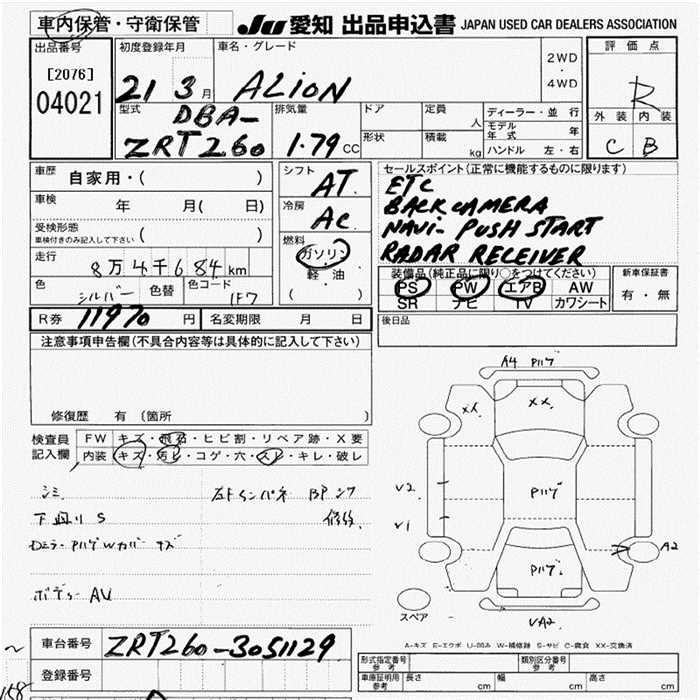 車内保管・守衛保管
JU 愛知 出品申込書 JAPAN USED CAR DEALERS ASSOCIATION
出品番号
[2076]
04021
初度登録年月
21 3月
車名・グレード
ALION
2WD
・
4WD
評価点
R
外装 内装
C B
型式
DBA-
ZRT260
排気量
1.79 CC
ドア
形状
定員 人
積載 kg
ディーラー・並行
モデル年式 年
ハンドル 左・右
車歴
自家用・( )
車検 年 月( 日)
受検形態
車検付きのみ記入して下さい ( )
走行
8万4千684km
色 シルバー 色替 色コード 1F7
シフト
AT.
冷房
AC
燃料
ガソリン
・
軽油
( )
セールスポイント(正常に機能するものに限ります)
ETC
BACK CAMERA
NAVI- PUSH START
RADAR RECEIVER
装備品(純正品に限り○をつけてください)
PS PW エアB AW
SR ナビ TV カワシート
新車保証書
有・無
R券 11970 円 名変期限 月 日
後日品
注意事項申告欄(不具合内容等は具体的に記入して下さい)
修復歴 有 (箇所
検査員
記入欄
FW キズ・飛石・ヒビ割・リペア跡・X要
内装 キズ・汚レ・コゲ・穴・スレ・キレ・破レ
シミ
下廻り S
ボディー AU
修復
A4 Pハゲ
XX
XX
V2
Pハゲ
V1
A2
Pハゲ
VA2
スペア
A-キズ E-エクボ U-凹み W-補修跡 S-サビ C-腐食 XX-交換済
車台番号 ZRT260-3051129
登録番号
形式指定番号
参考
類別区分番号
参考
車庫証明用
参考
長さ cm 幅 cm 高さ cm